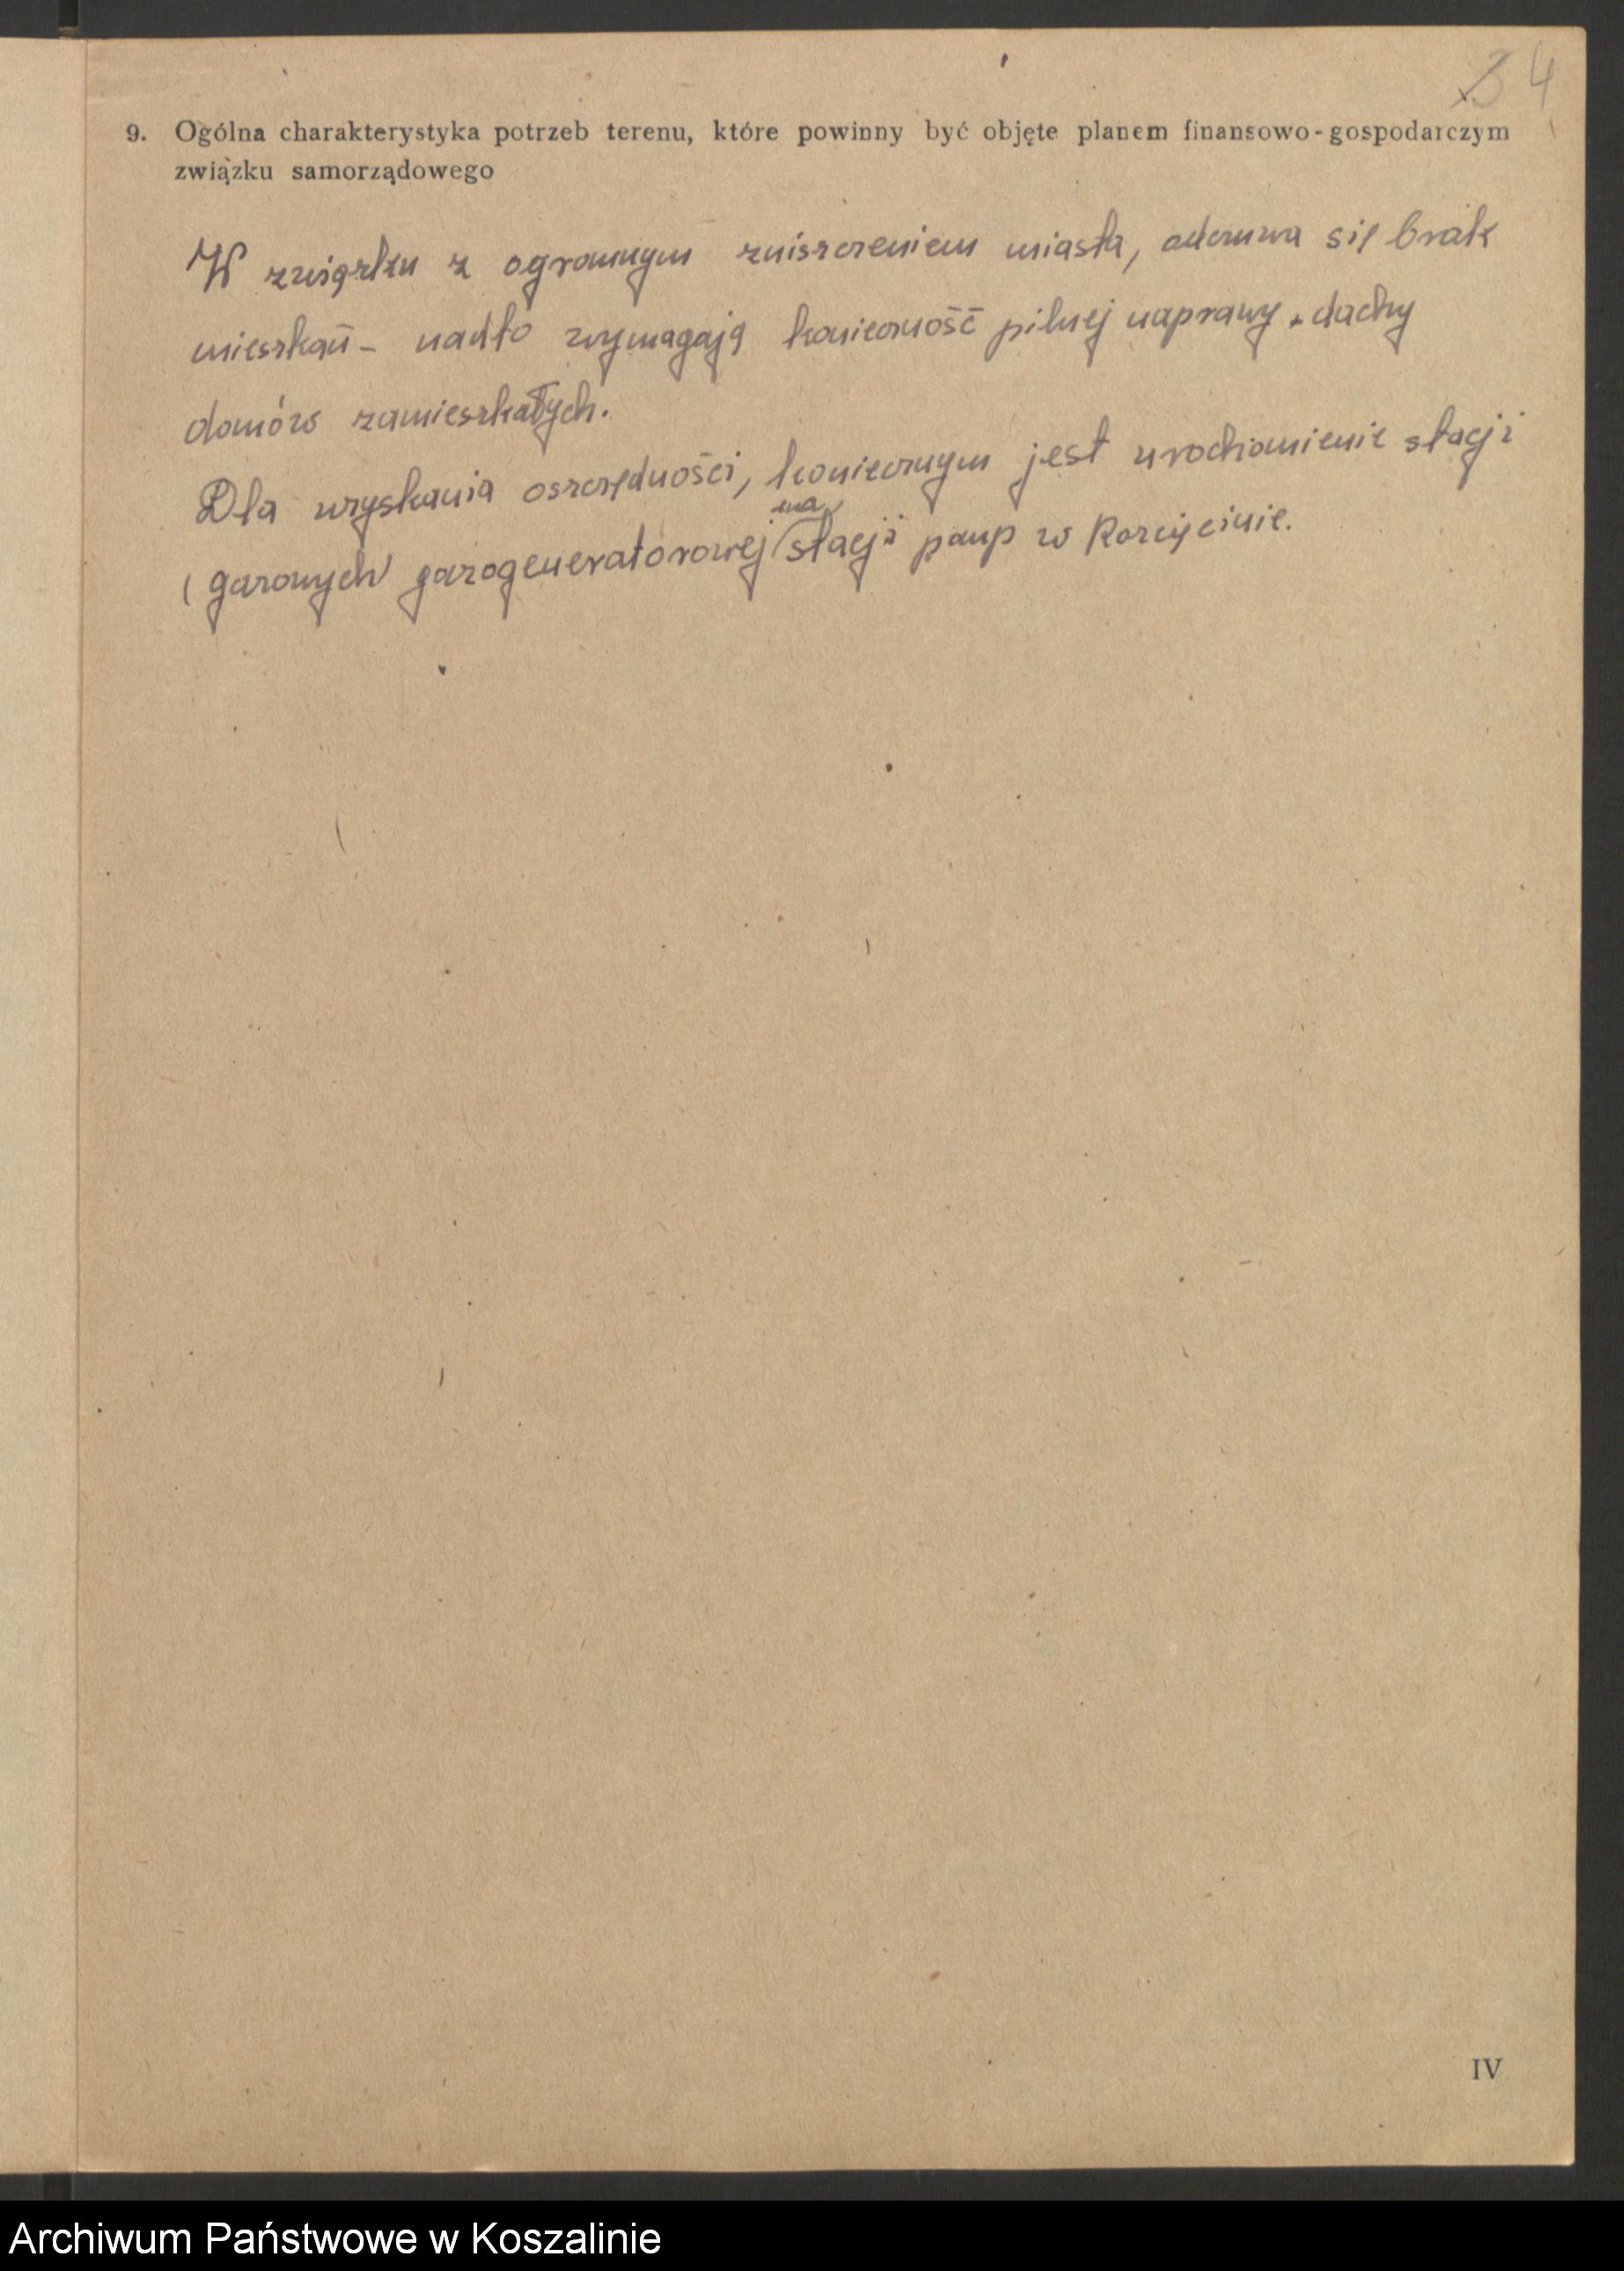 34
9. Ogólna charakterystyka potrzeb terenu, które powinny być objęte planem finansowo-gospodarczym
związku samorządowego
W związku z ogromnym zniszczeniem miasta, odczuwa się brak
mieszkań - nadto wymagają konieczność pilnej naprawy dachy
domów zamieszkałych.
Dla uzyskania oszczędności, koniecznym jest uruchomienie stacji
na
(gazowych) gazogeneratorowej stacji pomp w
IV
Archiwum Państwowe w Koszalinie